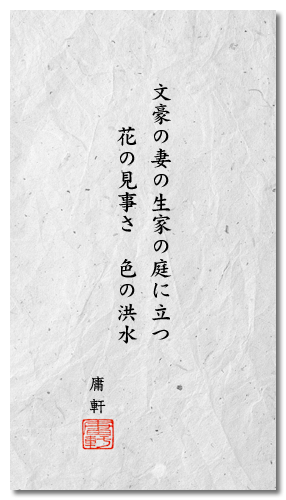 文豪の妻の生家の庭に立つ
花の見事さ　色の洪水
庸軒
庸軒